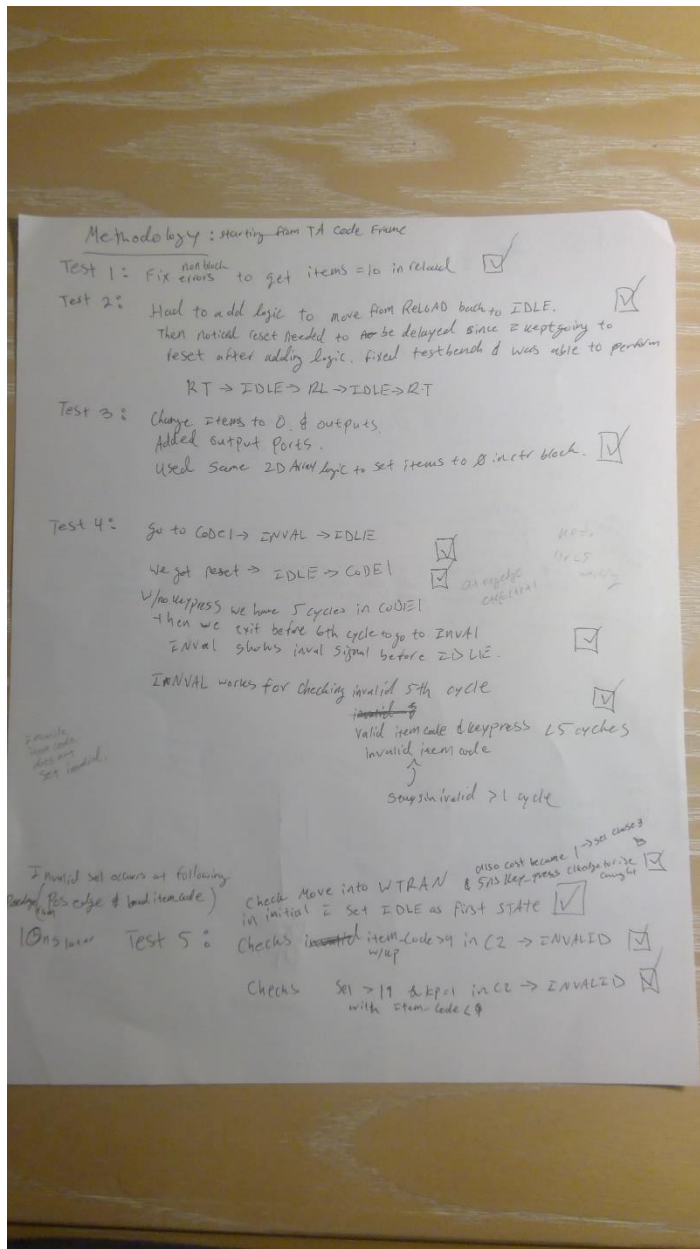 Methodology : starting from TA Code Frame
Test 1: Fix nonblock errors to get items = 10 in reload
Test 2: Had to add logic to move from RELOAD back to IDLE.
Then noticed reset needed to be delayed since I kept going to
reset after adding logic. fixed testbench & was able to perform
RT → IDLE → RL → IDLE → RT
Test 3: Change Items to 0 & outputs
Added output ports.
Used same 2D Array logic to set items to 0 in ctr block.
Test 4: go to CODE1 → INVAL → IDLE
We got reset → IDLE → CODE1
w/no keypress we have 5 cycles in CODE1
then we exit before 6th cycle to go to INVAL
INVAL shows inval signal before IDLE.
INVAL works for checking invalid 5th cycle
invalid
valid item code & keypress < 5 cycles
Invalid item code
stays in invalid > 1 cycle
item code
does
set invalid.
Invalid sel occurs at following
Pos edge & bad item code)
also cost became 1 →
Check Move into WTRAN & 5ns key-press
caught
in initial I set IDLE as first STATE
10ns later Test 5: Checks invalid item-code > 9 in C2 → INVALID
w/kp
Checks sel > 19 & kp=1 in C2 → INVALID
with item-code <